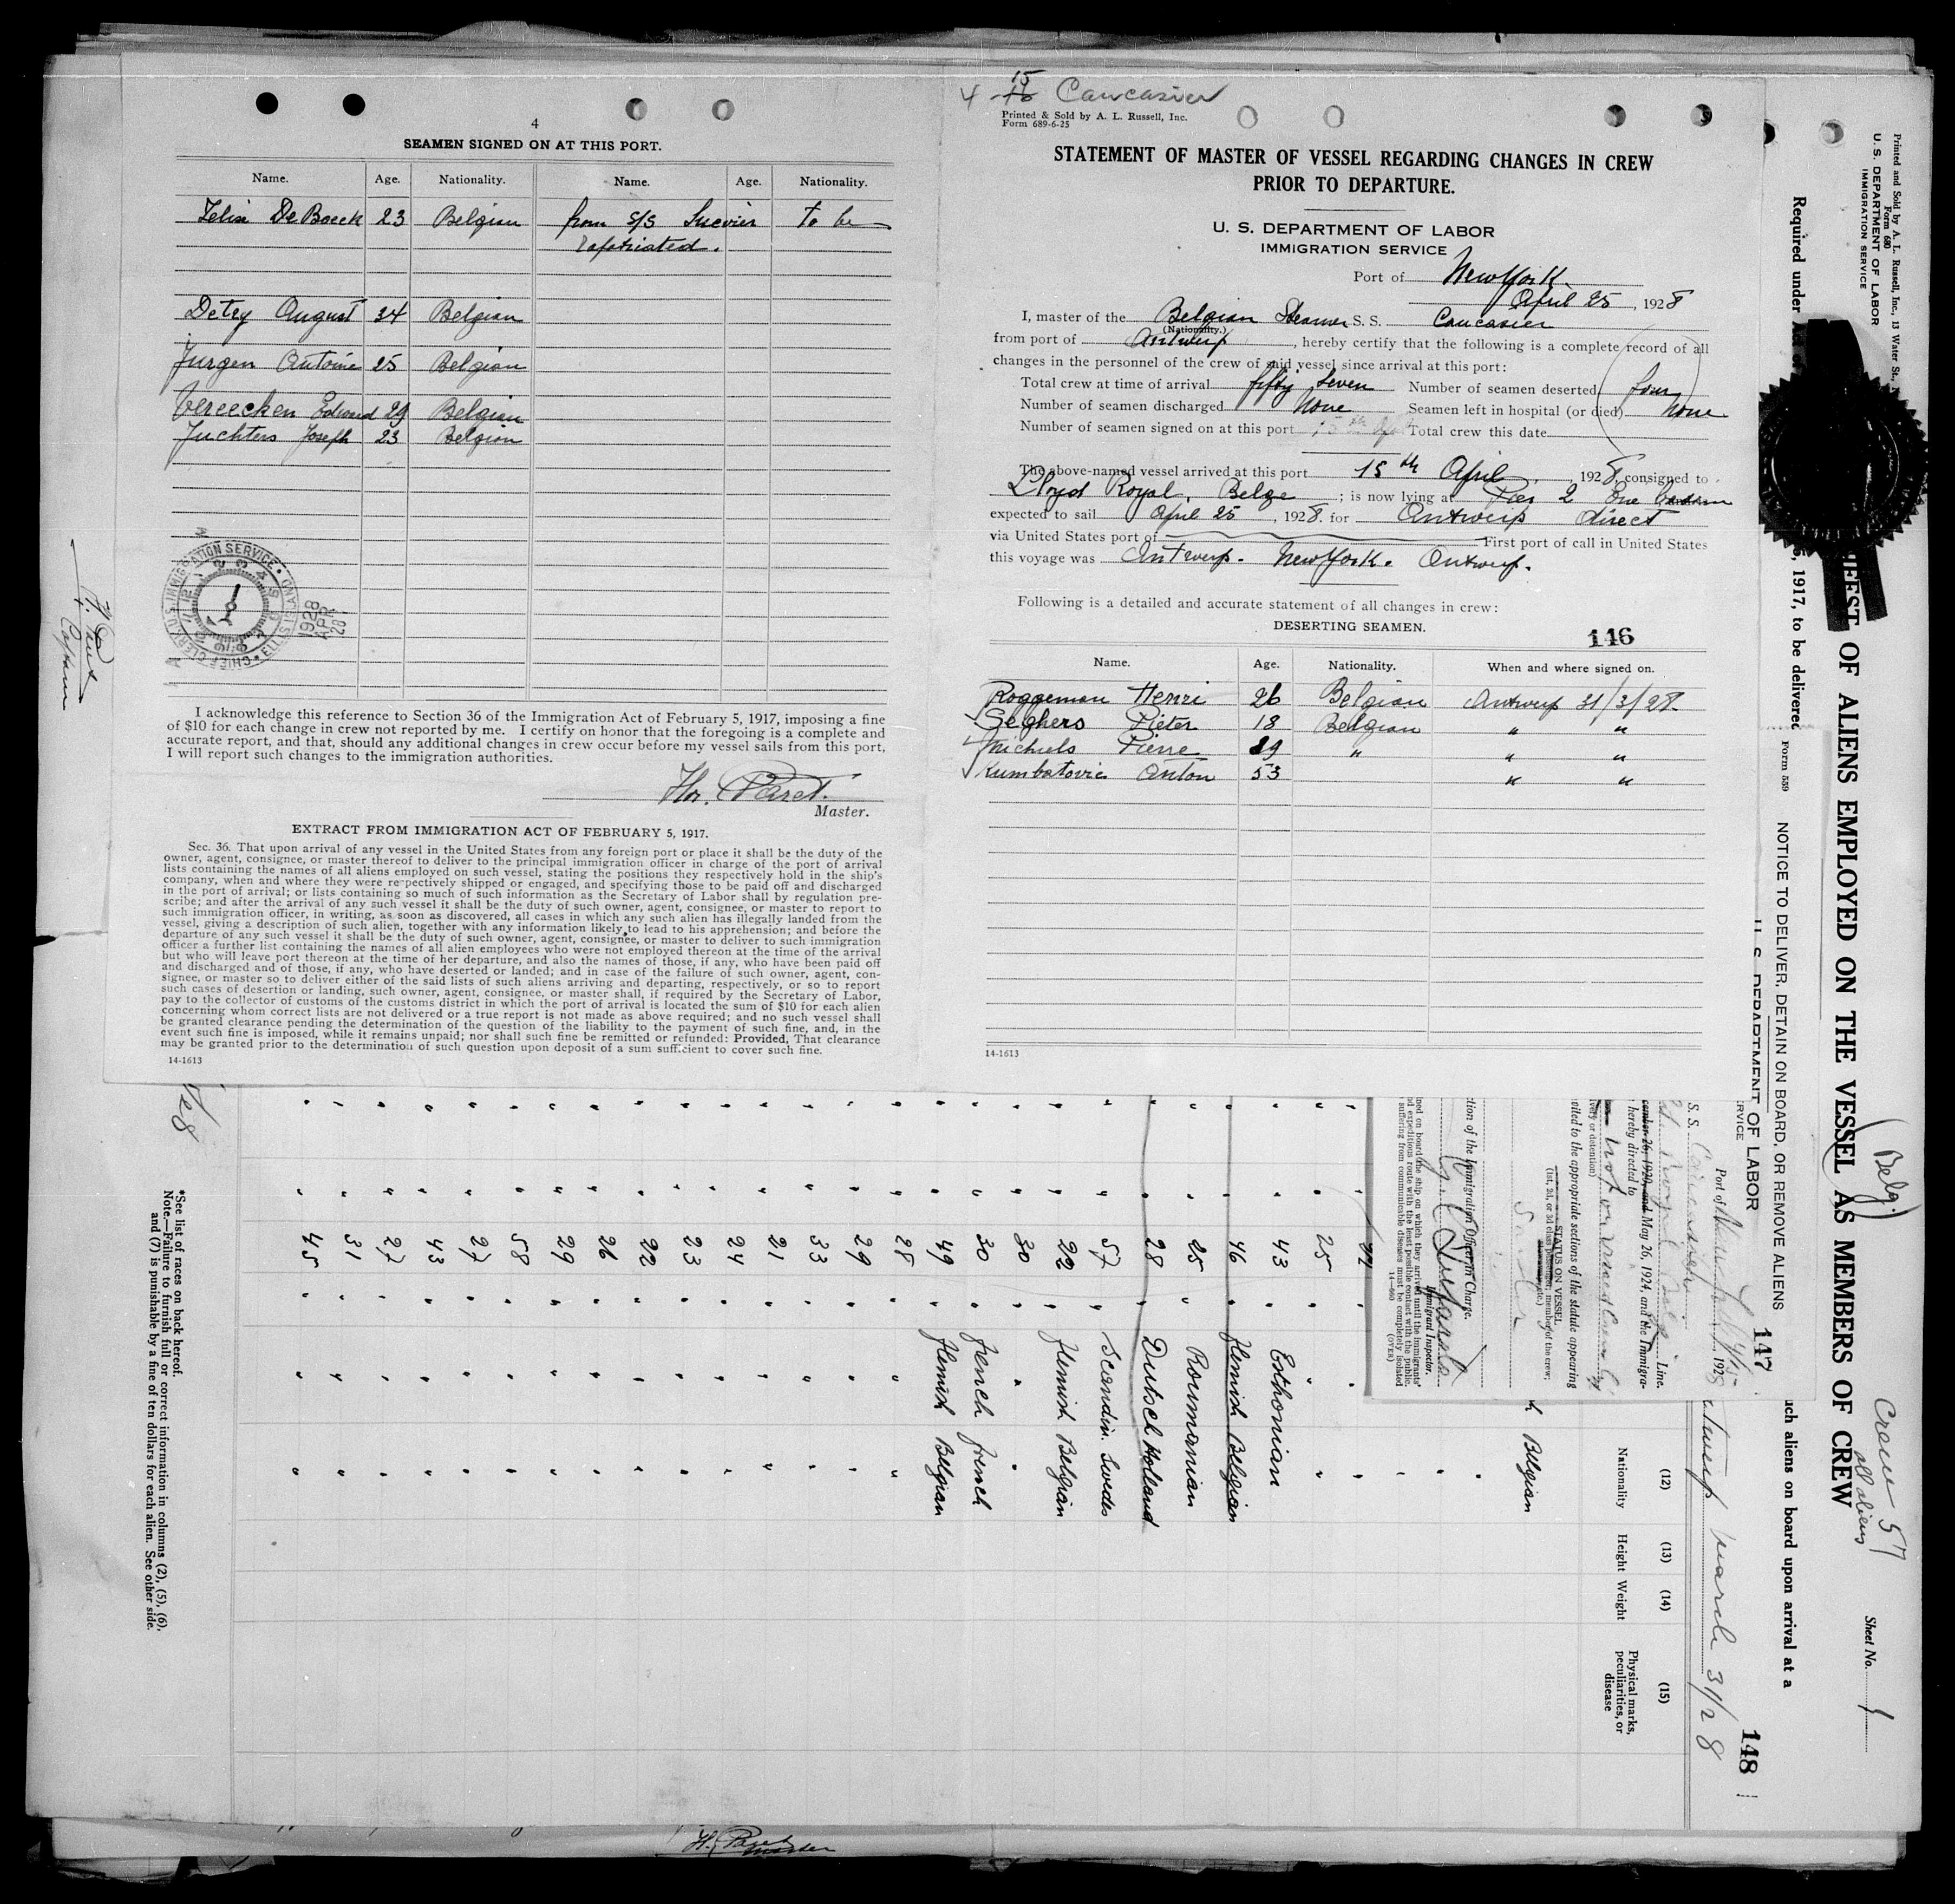 4
SEAMEN SIGNED ON AT THIS PORT.
Name. Age. Nationality. Name. Age. Nationality.
Felix De Boeck 23 Belgian from S/S Suevier to be
repatriated.
Detry August 34 Belgian
Jurgen Antoine 25 Belgian
Vereecken Edward 29 Belgian
Juchters Joseph 23 Belgian
IMMIGRATION SERVICE
CHIEF CLERK U.S.
ELLIS ISLAND
1928
APR
28
I acknowledge this reference to Section 36 of the Immigration Act of February 5, 1917, imposing a fine
of $10 for each change in crew not reported by me. I certify on honor that the foregoing is a complete and
accurate report, and that, should any additional changes in crew occur before my vessel sails from this port,
I will report such changes to the immigration authorities.
Master.
EXTRACT FROM IMMIGRATION ACT OF FEBRUARY 5, 1917.
Sec. 36. That upon arrival of any vessel in the United States from any foreign port or place it shall be the duty of the
owner, agent, consignee, or master thereof to deliver to the principal immigration officer in charge of the port of arrival
lists containing the names of all aliens employed on such vessel, stating the positions they respectively hold in the ship's
company, when and where they were respectively shipped or engaged, and specifying those to be paid off and discharged
in the port of arrival; or lists containing so much of such information as the Secretary of Labor shall by regulation pre-
scribe; and after the arrival of any such vessel it shall be the duty of such owner, agent, consignee, or master to report to
such immigration officer, in writing, as soon as discovered, all cases in which any such alien has illegally landed from the
vessel, giving a description of such alien, together with any information likely to lead to his apprehension; and before the
departure of any such vessel it shall be the duty of such owner, agent, consignee, or master to deliver to such immigration
officer a further list containing the names of all alien employees who were not employed thereon at the time of the arrival
but who will leave port thereon at the time of her departure, and also the names of those, if any, who have been paid off
and discharged and of those, if any, who have deserted or landed; and in case of the failure of such owner, agent, con-
signee, or master so to deliver either of the said lists of such aliens arriving and departing, respectively, or so to report
such cases of desertion or landing, such owner, agent, consignee, or master shall, if required by the Secretary of Labor,
pay to the collector of customs of the customs district in which the port of arrival is located the sum of $10 for each alien
concerning whom correct lists are not delivered or a true report is not made as above required; and no such vessel shall
be granted clearance pending the determination of the question of the liability to the payment of such fine, and, in the
event such fine is imposed, while it remains unpaid; nor shall such fine be remitted or refunded: Provided, That clearance
may be granted prior to the determination of such question upon deposit of a sum sufficient to cover such fine.
14-1613
4 15 Caucasier
Printed & Sold by A. L. Russell, Inc.
Form 689-6-25
STATEMENT OF MASTER OF VESSEL REGARDING CHANGES IN CREW
PRIOR TO DEPARTURE.
U. S. DEPARTMENT OF LABOR
IMMIGRATION SERVICE
Port of New York.
April 25, 1928
I, master of the Belgian Steamer S. S. Caucasier
(Nationality.)
from port of Antwerp, hereby certify that the following is a complete record of all
changes in the personnel of the crew of said vessel since arrival at this port:
Total crew at time of arrival fifty seven Number of seamen deserted four
Number of seamen discharged None Seamen left in hospital (or died) None
Number of seamen signed on at this port Total crew this date
The above-named vessel arrived at this port 15th April, 1928, consigned to
Lloyd Royal, Belge; is now lying at Pier 2
expected to sail April 25, 1928. for Antwerp direct
via United States port of First port of call in United States
this voyage was Antwerp. New York. Antwerp.
Following is a detailed and accurate statement of all changes in crew:
DESERTING SEAMEN.
146
Name. Age. Nationality. When and where signed on.
Roggeman Henri 26 Belgian Antwerp 31/3/28.
Seghers Pieter 18 Belgian " "
Michiels Pierre 29 " " "
Kumbatovic Anton 53 " "
14-1613
Printed and Sold by A. L. Russell, Inc., 13 Water St.,
Form 680
U. S. DEPARTMENT OF LABOR
IMMIGRATION SERVICE
OF ALIENS EMPLOYED ON THE VESSEL AS MEMBERS OF CREW
(Belg)
Crew 57
all aliens
Sheet No. 1
Required under
1917, to be delivered
such aliens on board upon arrival at a
148
March 31/28
Form 559
NOTICE TO DELIVER, DETAIN ON BOARD, OR REMOVE ALIENS
147
DEPARTMENT OF LABOR
S. S. Caucasier
Port of New York 4/15 1928
Line.
May 26, 1924, and the Immigra-
hereby directed to
(very or detention)
to the appropriate sections of the statute appearing
STATUS ON VESSEL
member of the crew;
Immigration Officer in Charge.
Immigrant Inspector.
on board the ship on which they arrived until the immigrants'
expeditious route with the least possible contact with the public.
suffering from communicable diseases must be completely isolated
14-660 (OVER)
(12) Nationality
(13) Height
(14) Weight
(15) Physical marks, peculiarities, or disease
Belgian
25
43 Esthonian
46 Flemish Belgian
25 Roumanian
28 Dutsch Holland
57 Scandin. Swedes
22 Flemish Belgian
30
30 French French
49 Flemish Belgian
28
29
33
21
24
23
22
26
29
58
27
43
27
31
45
*See list of races on back hereof.
Note.—Failure to furnish full or correct information in columns (2), (5), (6),
and (7) is punishable by a fine of ten dollars for each alien. See other side.